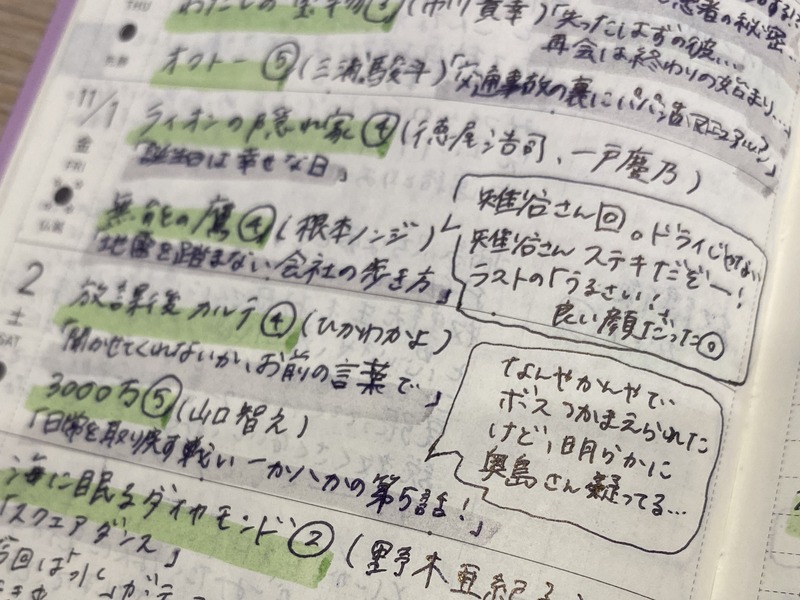 THU
わたしの宝物③(市川貴幸)「失ったはずの彼…
再会は終わりの始まり…
オクトー⑤(三浦駿斗)「交通事故の裏にパパ活マニュアル?」
11/1
金
FRI
ライオンの隠れ家④(徳尾浩司、一戸慶乃)
「誕生日は幸せな日」
無能の鷹④(根本ノンジ)
「地雷を踏まない会社の歩き方」
雉谷さん回。ドライじゃない
雉谷さんステキだぞー!
ラストの「うるさい!」
良い顔だった。
2
土
SAT
放課後カルテ④(ひかわかよ)
「聞かせてくれないか、お前の言葉で」
3000万⑤(山口智之)
「日常を取り戻す戦い 一か八かの第5話!」
なんやかんやで
ボスつかまえられた
けど、明らかに
奥島さん疑ってる…
海に眠るダイヤモンド②(野木亜紀子)
「スクエアダンス」
今回は